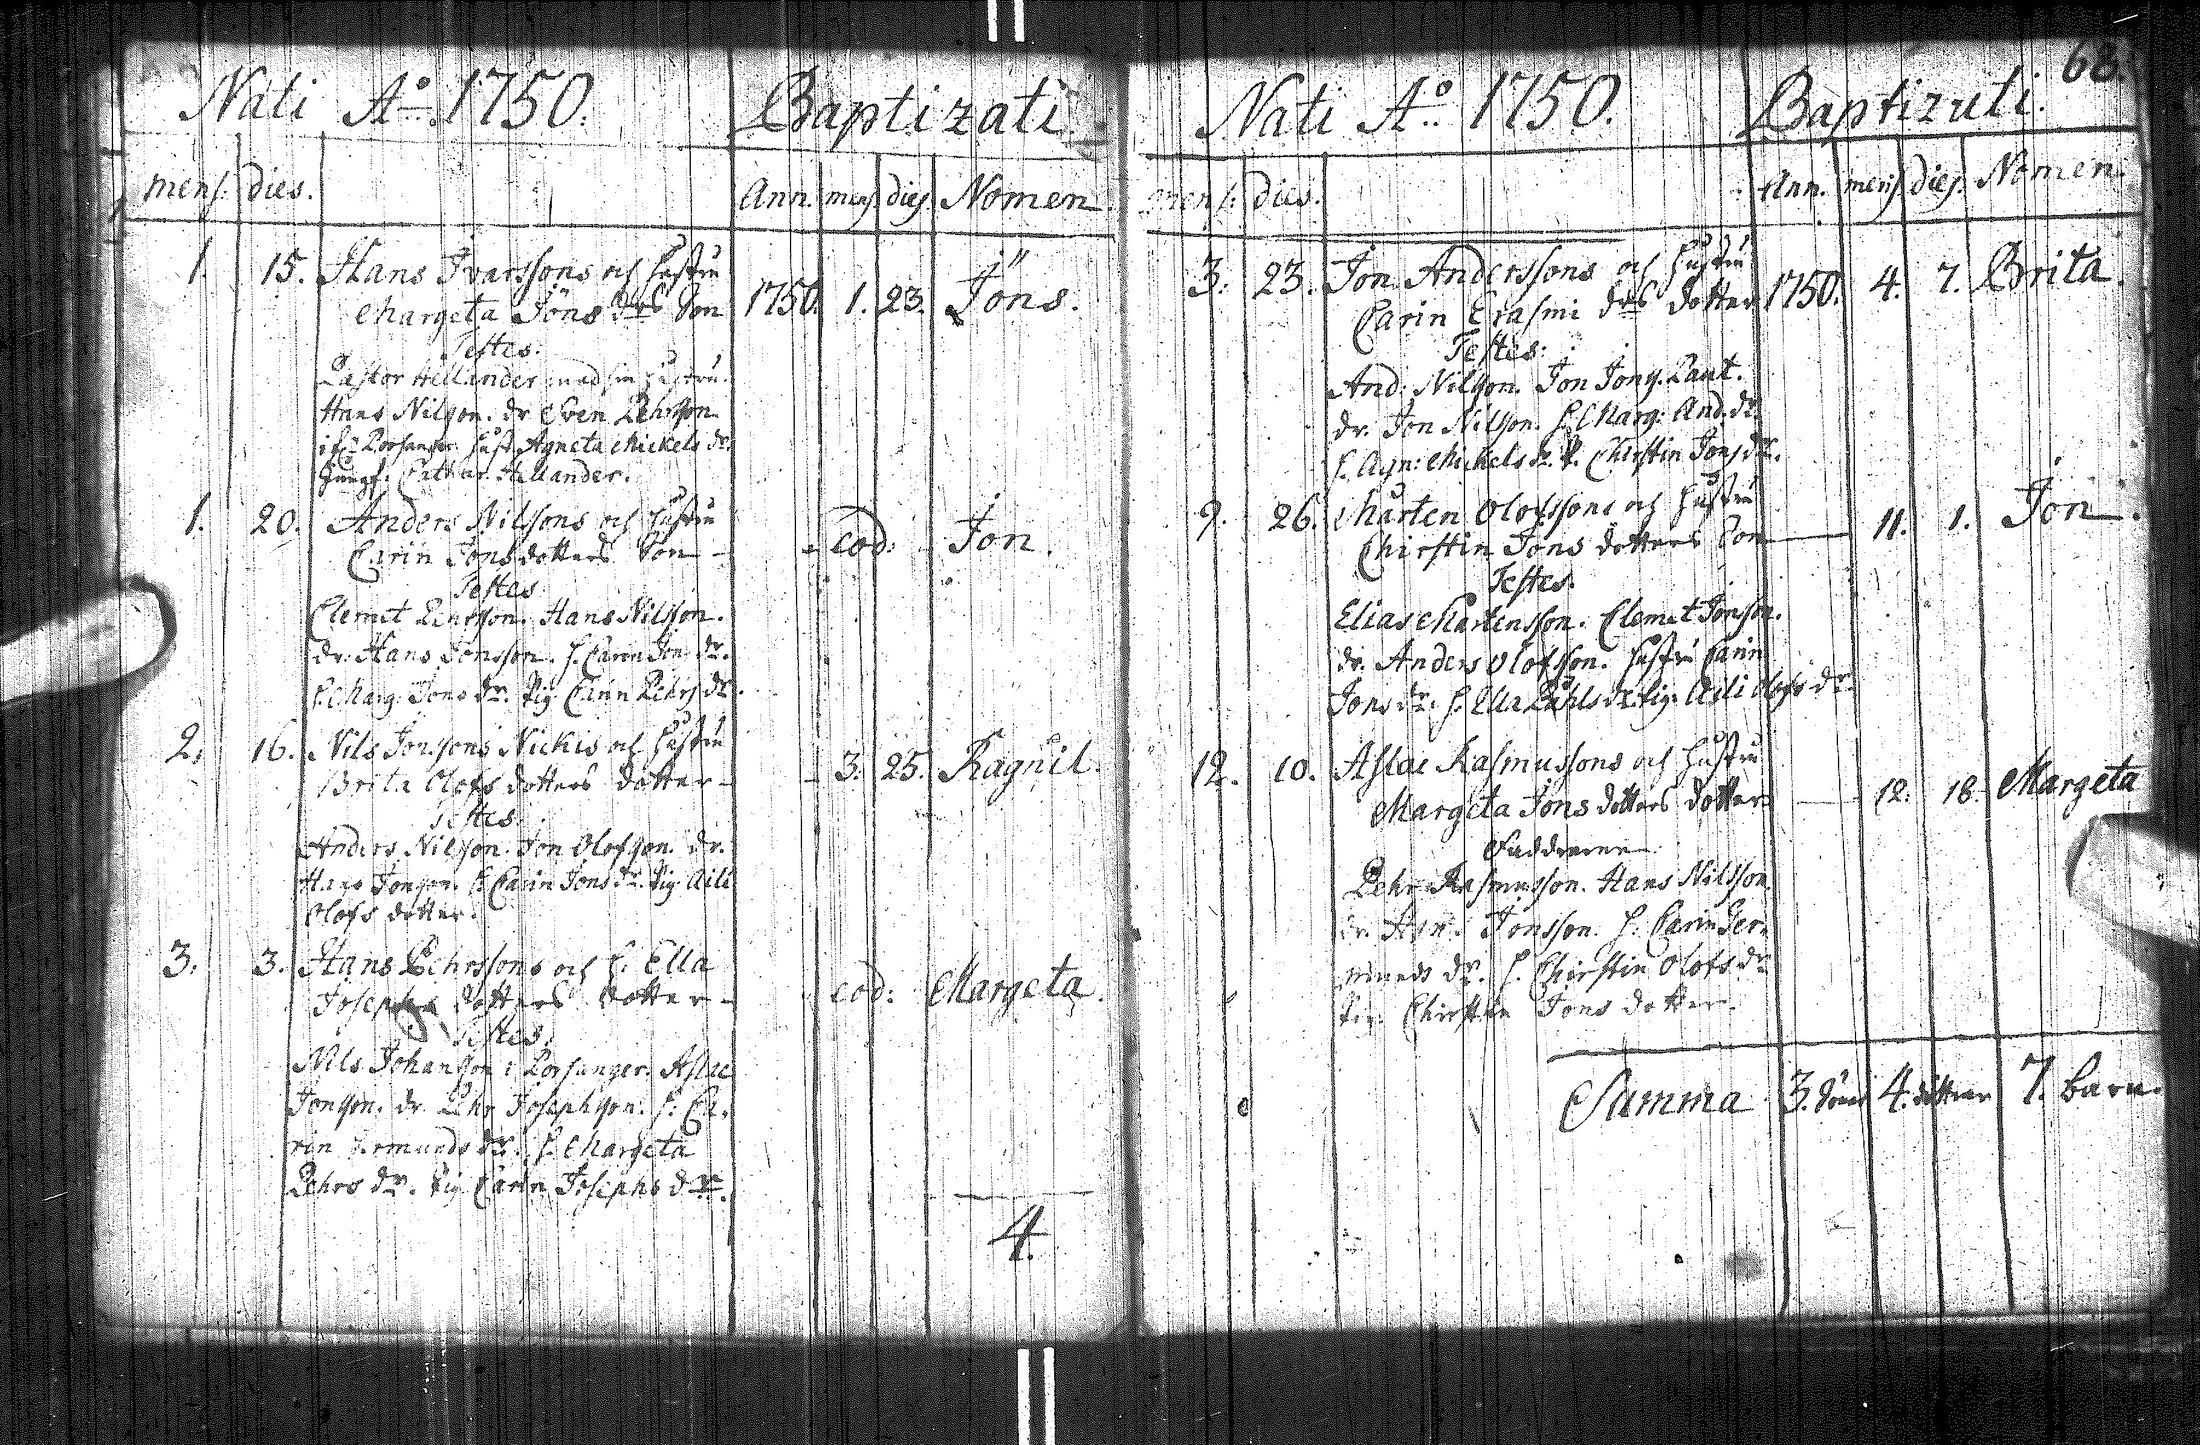 Nati Ao 1750. Baptizati
mens. dies. Ann. mens. dies. Nomen.
1. 15. Hans Ivarssons och hustru
Margeta Jöns drs Son 1750. 1. 23. Jöns.
Testes.
Pastor Hellander med sin hustru.
Hans Nilsson. dr. Sven Pehrsson
Porsanger. Hust. Agneta Mickels dr.
Jungf. Cathar. Hellander.
1. 20. Anders Nilssons och hustru
Carin Jonsdotters Son - eod: Jon.
Testes
Clemet Hans Nilsson.
dr. Hans Jonsson. h. Carin Jons dr.
h. Marg. Jons dr. Pig. Carin Pehrs dr.
2. 16. Nils Jonssons Nickis och hustru
Brita Olofs dotters dotter - 3. 25. Ragnil.
Testes
Anders Nilsson. Jon Olofsson. dr.
Hans Jonsson. h. Carin Jons dr. Pig. Aili
Olofs dotter.
3. 3. Hans Pehrssons och h. Ella
Josephs dotters dotter - eod: Margeta.
Testes.
Nils Johansson i Porsanger. Aslac
Jonsson. dr. Pehr Josephson. h. Ca-
rin dr. h. Margeta
Pehrs dr. Pig. Carin Josephs dr.
4.
68.
Nati Ao 1750. Baptizati.
mens. dies. Ann. mens. dies. Nomen.
3. 23. Jon Anderssons och hustru
Carin Erasmi drs dotter 1750. 4. 7. Brita.
Testes.
And. Nilsson. Jon Jons.
dr. Jon Nilsson. h. Marg: And. dr.
h. Agn: Mickels dr. P. Chirstin Jons dr.
9. 26. Mårten Olofssons och hustru
Chirstin Jons dotters Son 11. 1. Jon.
Testes.
Elias Mårtensson. Clemet Jonsson.
dr. Anders Olofsson. hustru Carin
Jons dr. h. Ella Påhls dr. Pig. Aili Olofs dr.
12. 10. Aslac Rasmussons och hustru
Margeta Jons dotters dotter 12. 18. Margeta
Faddrarne
Pehr Rasmusson. Hans Nilsson.
dr. Hans Jonsson. h. Carin
dr. h. Chirstin Olofs dr
Pig. Chirstin Jons dotter.
Summa 3. Söner 4. döttrar 7. barn.